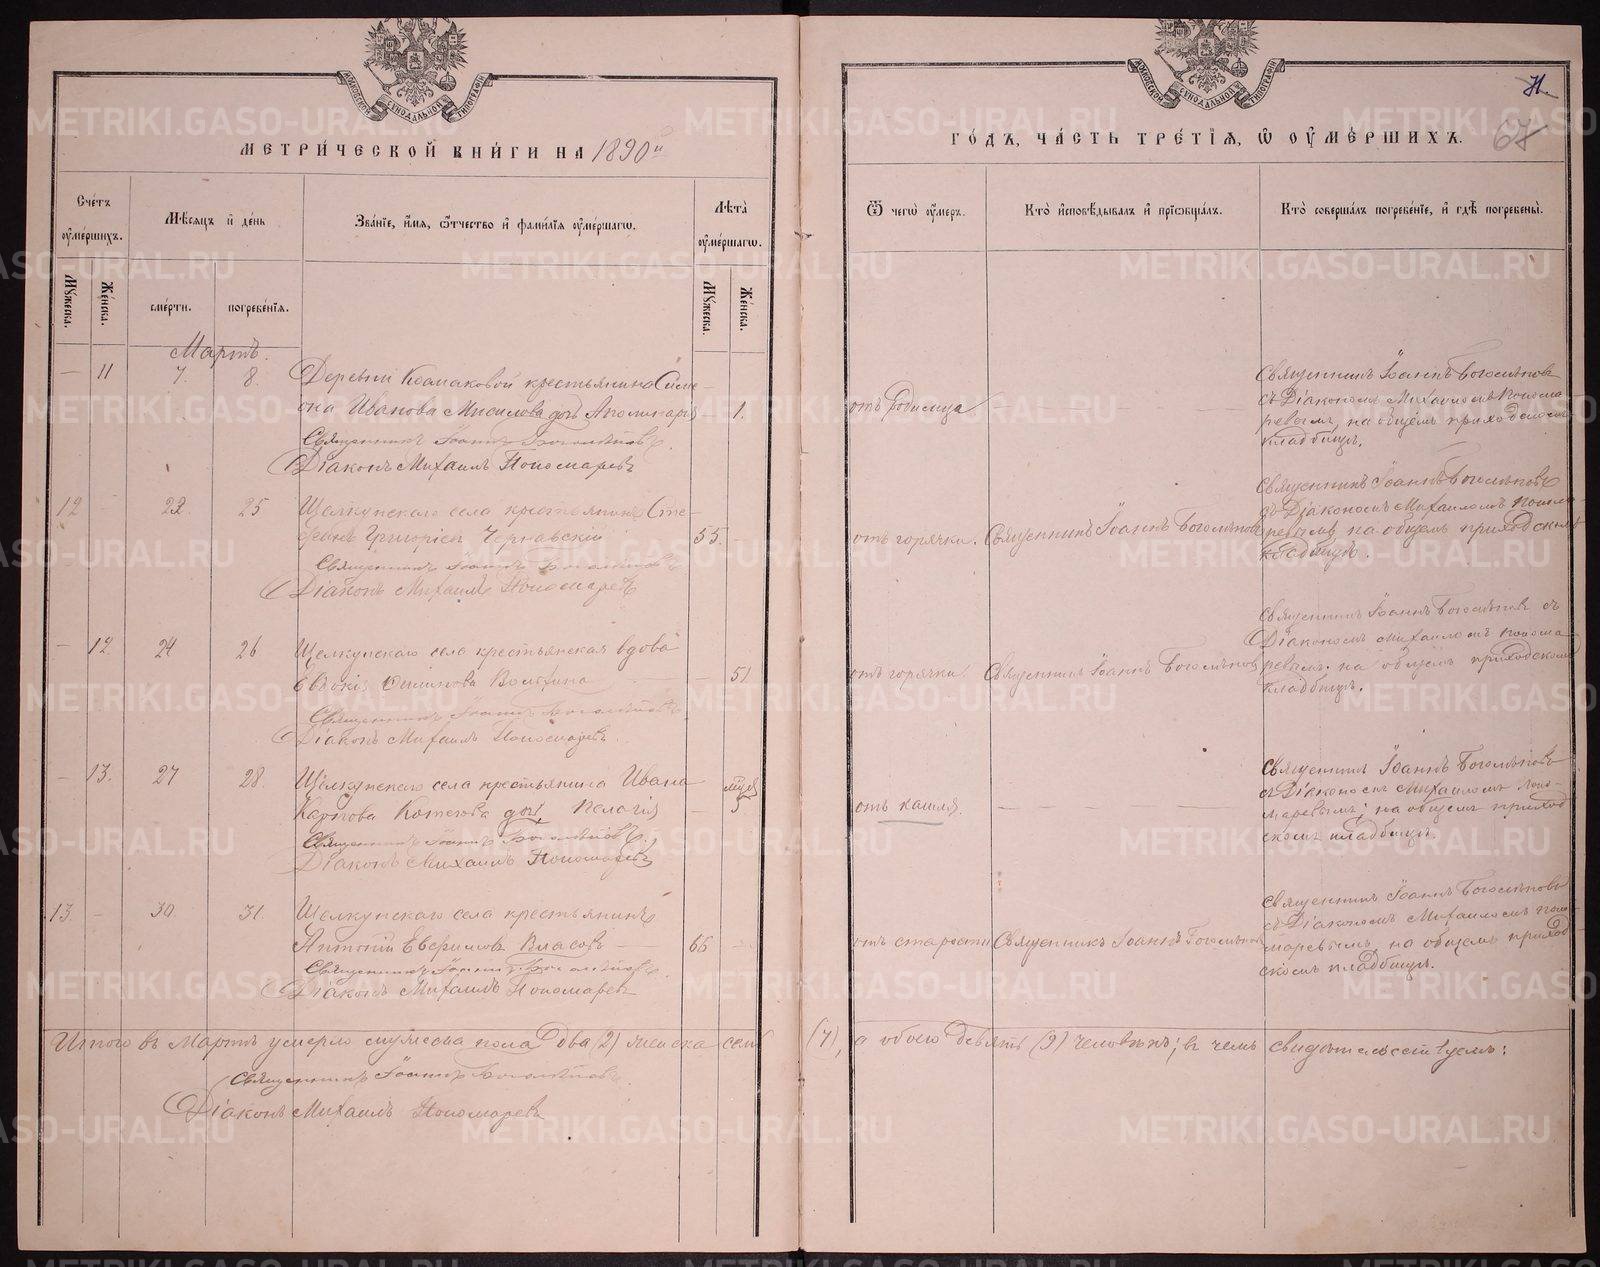 МОСКОВСКОЙ СУНОДАЛЬНОЙ ТИПОГРАФІИ
МЕТРИ́ЧЕСКОЙ КНИ́ГИ НА 1890й
Сче́тъ ᲂу҆ме́ршихъ.
Мꙋ́жеска.
Же́нска.
Мѣ́сѧцъ и҆ де́нь
сме́рти.
погребе́нїѧ.
Зва́нїе, и҆́мѧ, ѻ҆́тчество и҆ фами́лїѧ ᲂу҆ме́ршагѡ.
Лѣ́та ᲂу҆ме́ршагѡ.
Мꙋ́жеска.
Же́нска.
Мартъ.
— 11 7. 8. Деревни Космаковой крестьянина Симе-
она Иванова дочь Аполинарія — 1.
Священникъ Іоаннъ Боголѣповъ
Діаконъ Михаилъ Пономаревъ
12 — 22. 25 Щелкунскаго села крестьянинъ Сте-
фанъ Григоріевъ Чернавскій 55.
Священникъ Іоаннъ Боголѣповъ
Діаконъ Михаилъ Пономаревъ
— 12. 24 26 Щелкунскаго села крестьянская вдова
Евдокія Волохина — 51
Священникъ Іоаннъ Боголѣповъ
Діаконъ Михаилъ Пономаревъ.
— 13. 27 28. Щелкунскаго села крестьянина Ивана
Карпова дочь Пелагія — 5
Священникъ Іоаннъ Боголѣповъ
Діаконъ Михаилъ Пономаревъ
13. — 30. 31. Щелкунскаго села крестьянинъ
Антоній Евфимовъ Власовъ — 66 —
Священникъ Іоаннъ Боголѣповъ.
Діаконъ Михаилъ Пономаревъ
Итого въ Мартѣ умерло мужеска пола два (2) женска семь
Священникъ Іоаннъ Боголѣповъ.
Діаконъ Михаилъ Пономаревъ
МОСКОВСКОЙ СУНОДАЛЬНОЙ ТИПОГРАФІИ
71.
67
ГО́ДЪ, ЧА́СТЬ ТРЕ́ТІѦ, Ѡ҆ ОУ҆МЕ́РШИХЪ.
Ѿ чегѡ̀ ᲂу҆́меръ.
Кто̀ и҆сповѣ́дывалъ и҆ прїѡбща́лъ.
Кто̀ соверша́лъ погребе́нїе, и҆ гдѣ̀ погребены̀.
отъ родимца — —
Священникъ Іоаннъ Боголѣповъ
съ Діакономъ Михаиломъ Понома-
ревымъ, на общемъ приходскомъ
кладбищѣ.
отъ горячки. Священникъ Іоаннъ Боголѣповъ
Священникъ Іоаннъ Боголѣповъ
съ Діакономъ Михаиломъ Понома-
ревымъ на общемъ приходскомъ
кладбищѣ.
отъ горячки. Священникъ Іоаннъ Боголѣповъ
Священникъ Іоаннъ Боголѣповъ съ
Діакономъ Михаиломъ Понома-
ревымъ. на общемъ приходскомъ
кладбищѣ.
отъ кашля. — —
Священникъ Іоаннъ Боголѣповъ
съ Діакономъ Михаиломъ Поно-
маревымъ; на общемъ приход-
скомъ кладбищѣ.
отъ старости Священникъ Іоаннъ Боголѣповъ
Священникъ Іоаннъ Боголѣповъ
съ Діакономъ Михаиломъ Поно-
маревымъ, на общемъ приход-
скомъ кладбищѣ.
(7), а обоего девять (9) человѣкъ; въ чемъ свидѣтельствуемъ:
METRIKI.GASO-URAL.RU